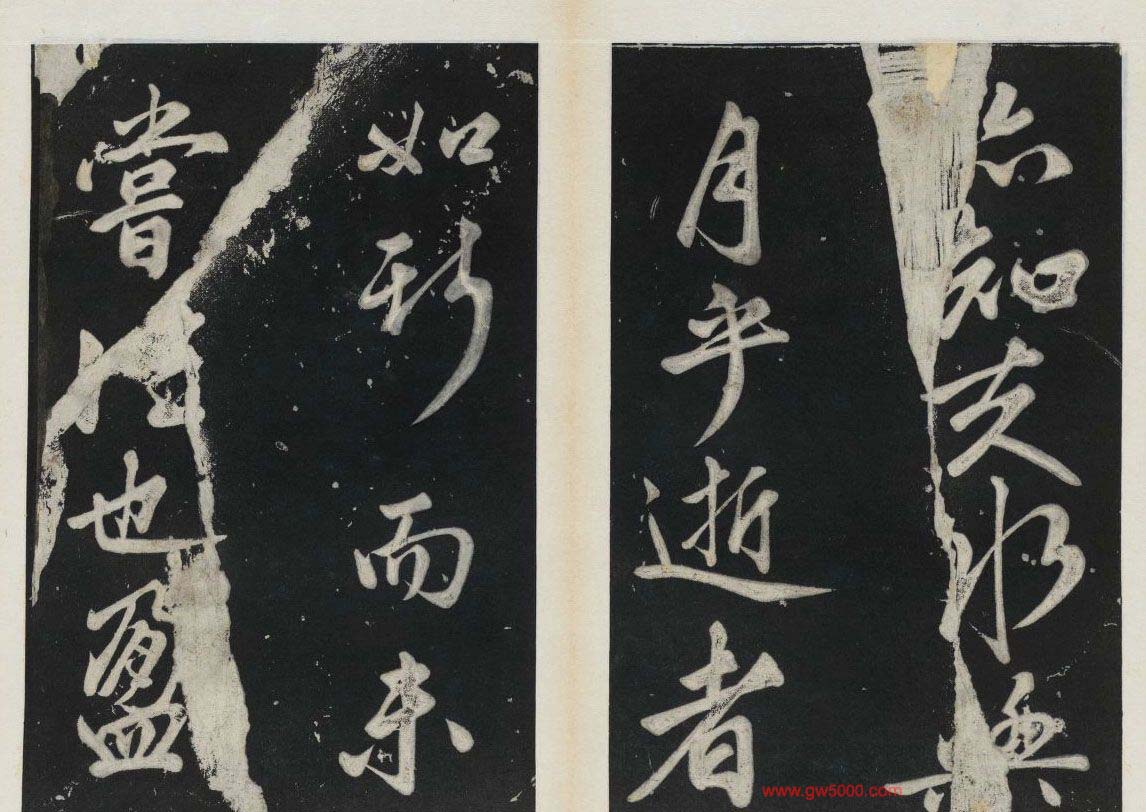 亦知夫水與
月乎逝者
如斯而未
嘗往也盈
www.gw5000.com